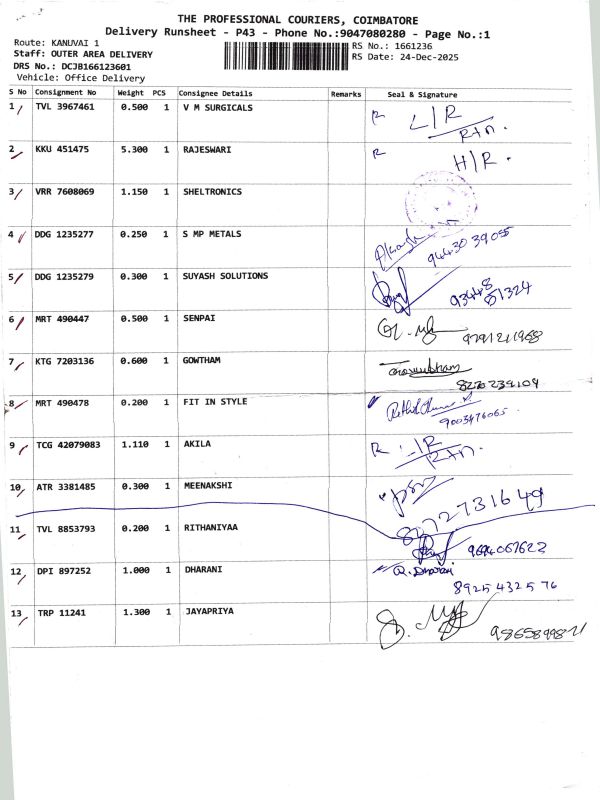 THE PROFESSIONAL COURIERS, COIMBATORE
Delivery Runsheet - P43 - Phone No.:9047080280 - Page No.:1
Route: KANUVAI 1
Staff: OUTER AREA DELIVERY
DRS No.: DCJB166123601
Vehicle: Office Delivery
RS No.: 1661236
RS Date: 24-Dec-2025
S No Consignment No Weight PCS Consignee Details Remarks Seal & Signature
1 TVL 3967461 0.500 1 V M SURGICALS R L/R
Rtn.
2 KKU 451475 5.300 1 RAJESWARI R H/R.
3 VRR 7608069 1.150 1 SHELTRONICS
4 DDG 1235277 0.250 1 S MP METALS 94430 39055
5 DDG 1235279 0.300 1 SUYASH SOLUTIONS 93448
51324
6 MRT 490447 0.500 1 SENPAI 9791211968
7 KTG 7203136 0.600 1 GOWTHAM
8270239109
8 MRT 490478 0.200 1 FIT IN STYLE
9003476065
9 TCG 42079083 1.110 1 AKILA R L/R
Rtn.
10 ATR 3381485 0.300 1 MEENAKSHI
8072731649
11 TVL 8853793 0.200 1 RITHANIYAA 9694067622
12 DPI 897252 1.000 1 DHARANI R. Dharani
8925432576
13 TRP 11241 1.300 1 JAYAPRIYA